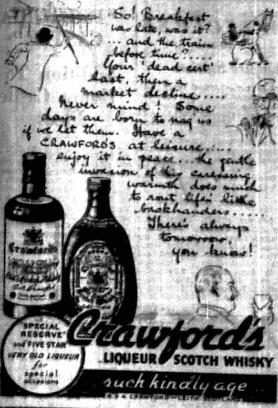 So! Breakfast
was late, was it?
... and the train
before time?....
Your 'dead cert'
last, then a
market decline.....
Never mind! Some
days are born to nag us
if we let them. Have a
CRAWFORD'S at leisure.....
enjoy it in peace... the gentle
invasion of its caressing
warmth does much
to rout life's little
backhanders.....
There's always
tomorrow,
you know!
Crawford's
SPECIAL
RESERVE
and FIVE STAR
VERY OLD LIQUEUR
for
special
occasions
Crawford's
LIQUEUR SCOTCH WHISKY
such kindly age...
A & A CRAWFORD